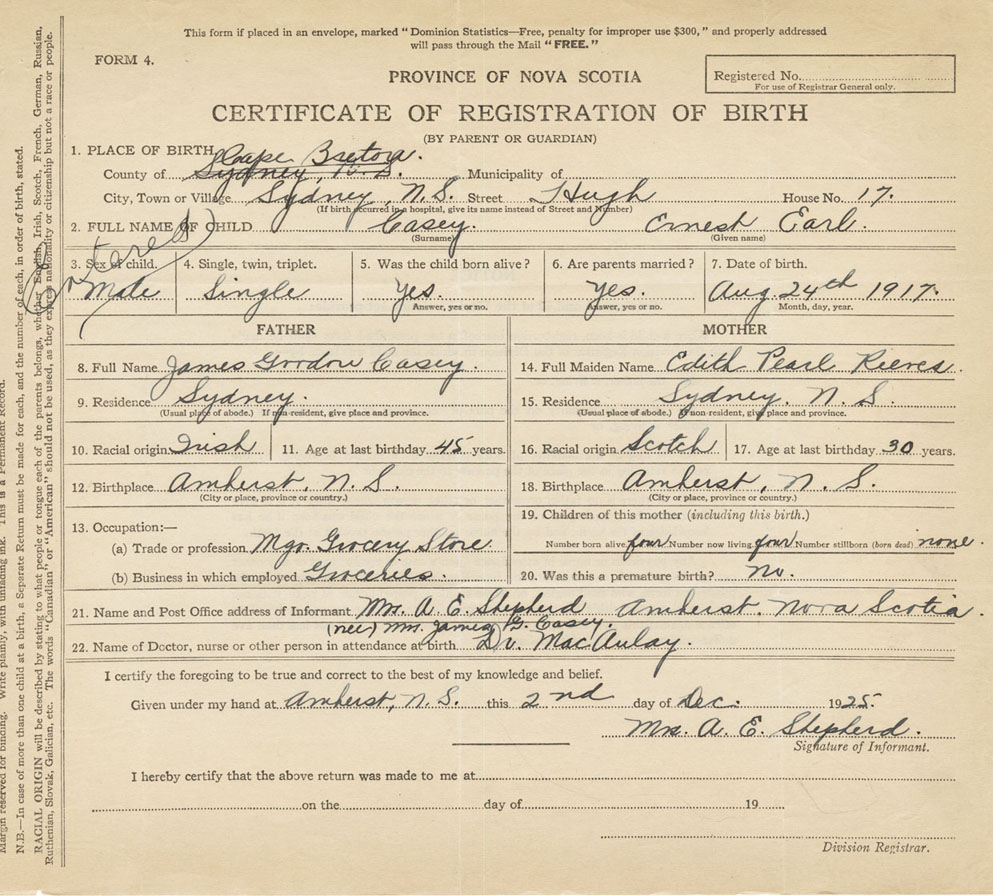 This form if placed in an envelope, marked "Dominion Statistics—Free, penalty for improper use $300," and properly addressed
will pass through the Mail "FREE."
FORM 4.
PROVINCE OF NOVA SCOTIA
Registered No.
For use of Registrar General only.
CERTIFICATE OF REGISTRATION OF BIRTH
(BY PARENT OR GUARDIAN)
1. PLACE OF BIRTH
Cape Breton.
County of Sydney, N.S. Municipality of
City, Town or Village Sydney, N.S. Street Hugh House No. 17.
(If birth occurred in a hospital, give its name instead of Street and Number)
2. FULL NAME OF CHILD Casey. Ernest Earl.
(Surname) (Given name)
3. Sex of child. 4. Single, twin, triplet. 5. Was the child born alive? 6. Are parents married? 7. Date of birth.
Male Single Yes. Yes. Aug 24th 1917.
Answer, yes or no. Answer, yes or no. Month, day, year.
FATHER MOTHER
8. Full Name James Gordon Casey. 14. Full Maiden Name Edith Pearl Reeves.
9. Residence Sydney. 15. Residence Sydney. N. S.
(Usual place of abode.) If non-resident, give place and province. (Usual place of abode.) If non-resident, give place and province.
10. Racial origin Irish 11. Age at last birthday 45 years. 16. Racial origin Scotch 17. Age at last birthday 30 years.
12. Birthplace Amherst, N. S. 18. Birthplace Amherst, N. S.
(City or place, province or country.) (City or place, province or country.)
13. Occupation:— 19. Children of this mother (including this birth.)
(a) Trade or profession Mgr. Grocery Store Number born alive four Number now living four Number stillborn (born dead) none.
(b) Business in which employed Groceries. 20. Was this a premature birth? no.
21. Name and Post Office address of Informant Mrs. A. E. Shepherd Amherst. Nova Scotia
(nee) Mrs. James G. Casey.
22. Name of Doctor, nurse or other person in attendance at birth Dr. MacAulay.
I certify the foregoing to be true and correct to the best of my knowledge and belief.
Given under my hand at Amherst, N.S. this 2nd day of Dec. 1925.
Mrs. A. E. Shepherd.
Signature of Informant.
I hereby certify that the above return was made to me at
on the day of 19
Division Registrar.
Margin reserved for binding. Write plainly, with unfading ink. This is a Permanent Record.
N.B.—In case of more than one child at a birth, a Separate Return must be made for each, and the number of each, in order of birth, stated.
RACIAL ORIGIN will be described by stating to what people or tongue each of the parents belongs, whether English, Irish, Scotch, French, German, Russian,
Ruthenian, Slovak, Galician, etc. The words "Canadian" or "American" should not be used, as they express nationality or citizenship but not a race or people.